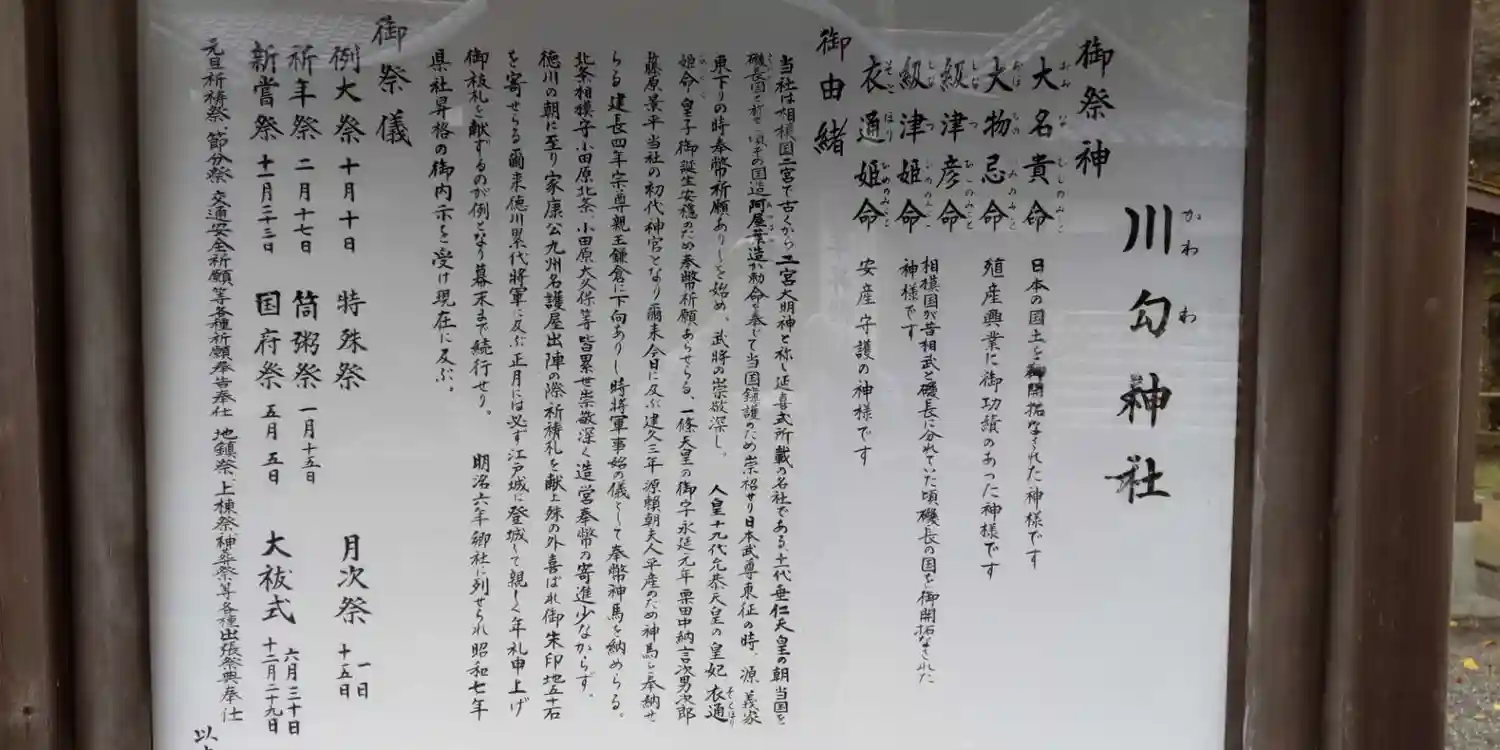 川勾神社
かわわ
御祭神
大名貴命 日本の国土を御開拓なされた神様です
大物忌命 殖産興業に御功績のあった神様です
級津彦命
級津姫命 相模国が昔相武と磯長に分れていた頃磯長の国を御開拓なされた
神様です
衣通姫命 安産守護の神様です
御由緒
当社は相模国二宮で古くから二宮大明神と称し延喜式所載の名社である、十一代垂仁天皇の朝当国を
磯長国と称せ頃その国造阿屋葉造が勅命を奉じて当国鎮護のため崇祀せり日本武尊東征の時、源義家
東下りの時奉幣祈願ありしを始め、武将の崇敬深し。 人皇十九代允恭天皇の皇妃衣通
姫命皇子御誕生安穏のため奉幣祈願あらせらる、一條天皇の御字永延元年粟田中納言次男次郎
藤原景平当社の初代神官となり爾来今日に及ぶ建久三年源頼朝夫人平産のため神馬を奉納せ
らる建長四年宗尊親王鎌倉に下向ありし時将軍事始の儀として奉幣神馬を納めらる。
北条相模守小田原北条、小田原大久保等皆累世崇敬深く造営奉幣の寄進少なからず。
徳川の朝に至り家康公九州名護屋出陣の際祈祷札を献上殊の外喜ばれ御朱印地五十石
を寄せらる爾来徳川累代将軍に及ぶ正月には必ず江戸城に登城して親しく年礼申上げ
御祓札を献ずるのが例となり幕末まで続行せり。 明治六年郷社に列せられ昭和七年
県社昇格の御内示を受け現在に及ぶ。
御祭儀
例大祭 十月十日 特殊祭 月次祭 一日 十五日
祈年祭 二月十七日 筒粥祭 一月十五日
新嘗祭 十一月二十三日 国府祭 五月五日 大祓式 六月三十日 十二月二十九日
元旦祈祷祭、節分祭 交通安全祈願等各種祈願奉告奉仕 地鎮祭、上棟祭、神葬祭等各種出張祭典奉仕
以